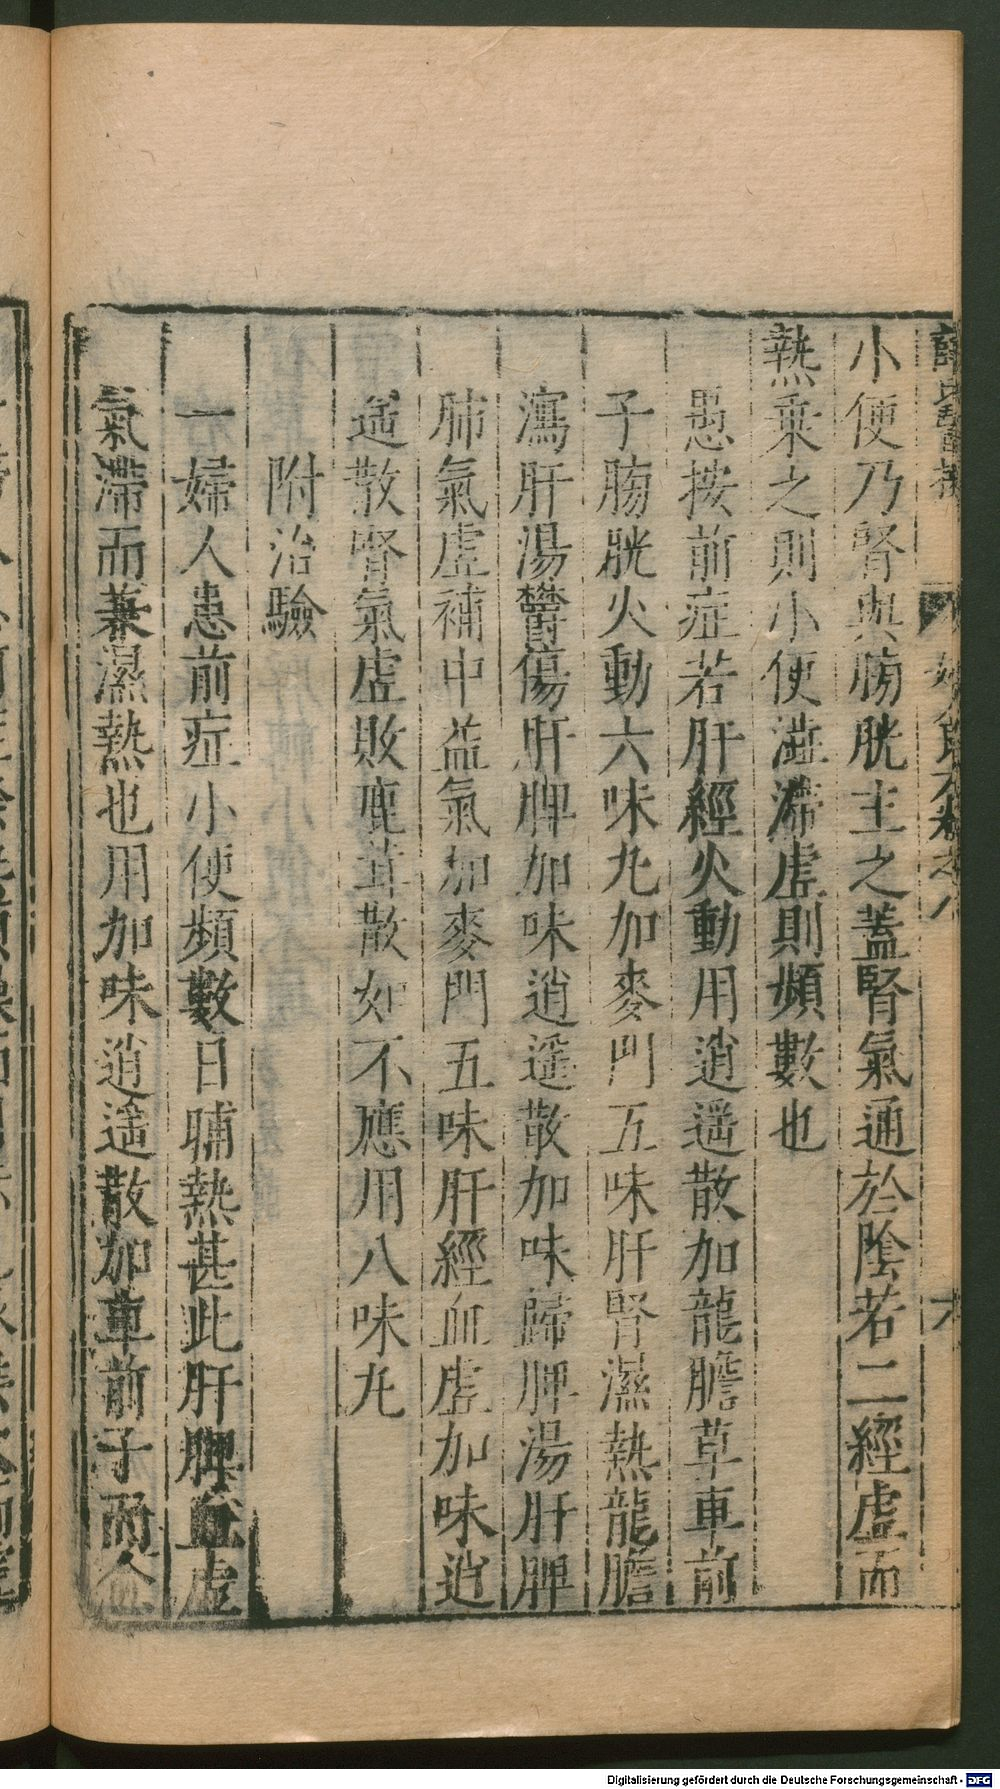 小便乃腎與膀胱主之蓋腎氣通於陰若二經虛而
熱乘之則小便澁滯虛則頻數也
愚按前症若肝經火動用逍遥散加龍膽草車前
子膀胱火動六味丸加麥門五味肝腎濕熱龍膽
瀉肝湯鬱傷肝脾加味逍遥散加味歸脾湯肝脾
肺氣虛補中益氣加麥門五味肝經血虛加味逍
遥散腎氣虛敗鹿茸散如不應用八味丸
附治驗
一婦人患前症小便頻數日晡熱甚此肝脾血虛
氣滯而兼濕熱也用加味逍遥散加車前子而
六
Digitalisierung gefördert durch die Deutsche Forschungsgemeinschaft - DFG